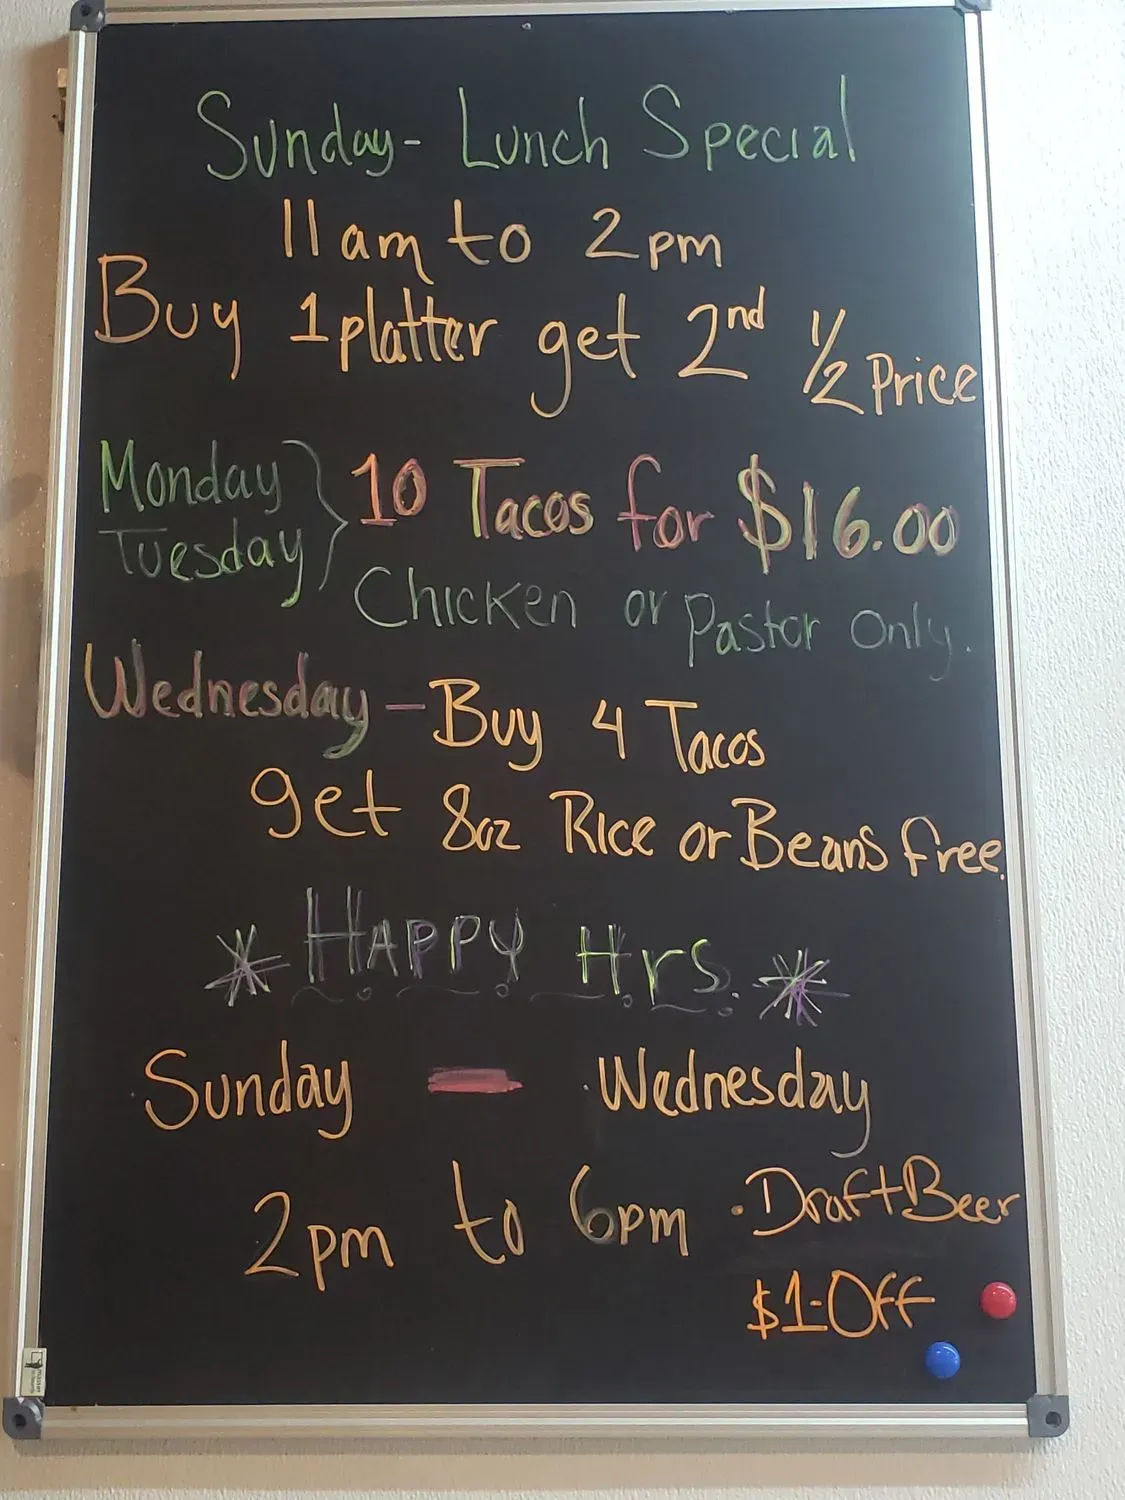 Sunday- Lunch Special
11am to 2pm
Buy 1 platter get 2nd 1/2 Price
Monday
Tuesday } 10 Tacos for $16.00
Chicken or Pastor Only.
Wednesday - Buy 4 Tacos
get 8oz Rice or Beans free.
* HAPPY Hrs. *
Sunday - Wednesday
2pm to 6pm
• Draft Beer
$1-Off